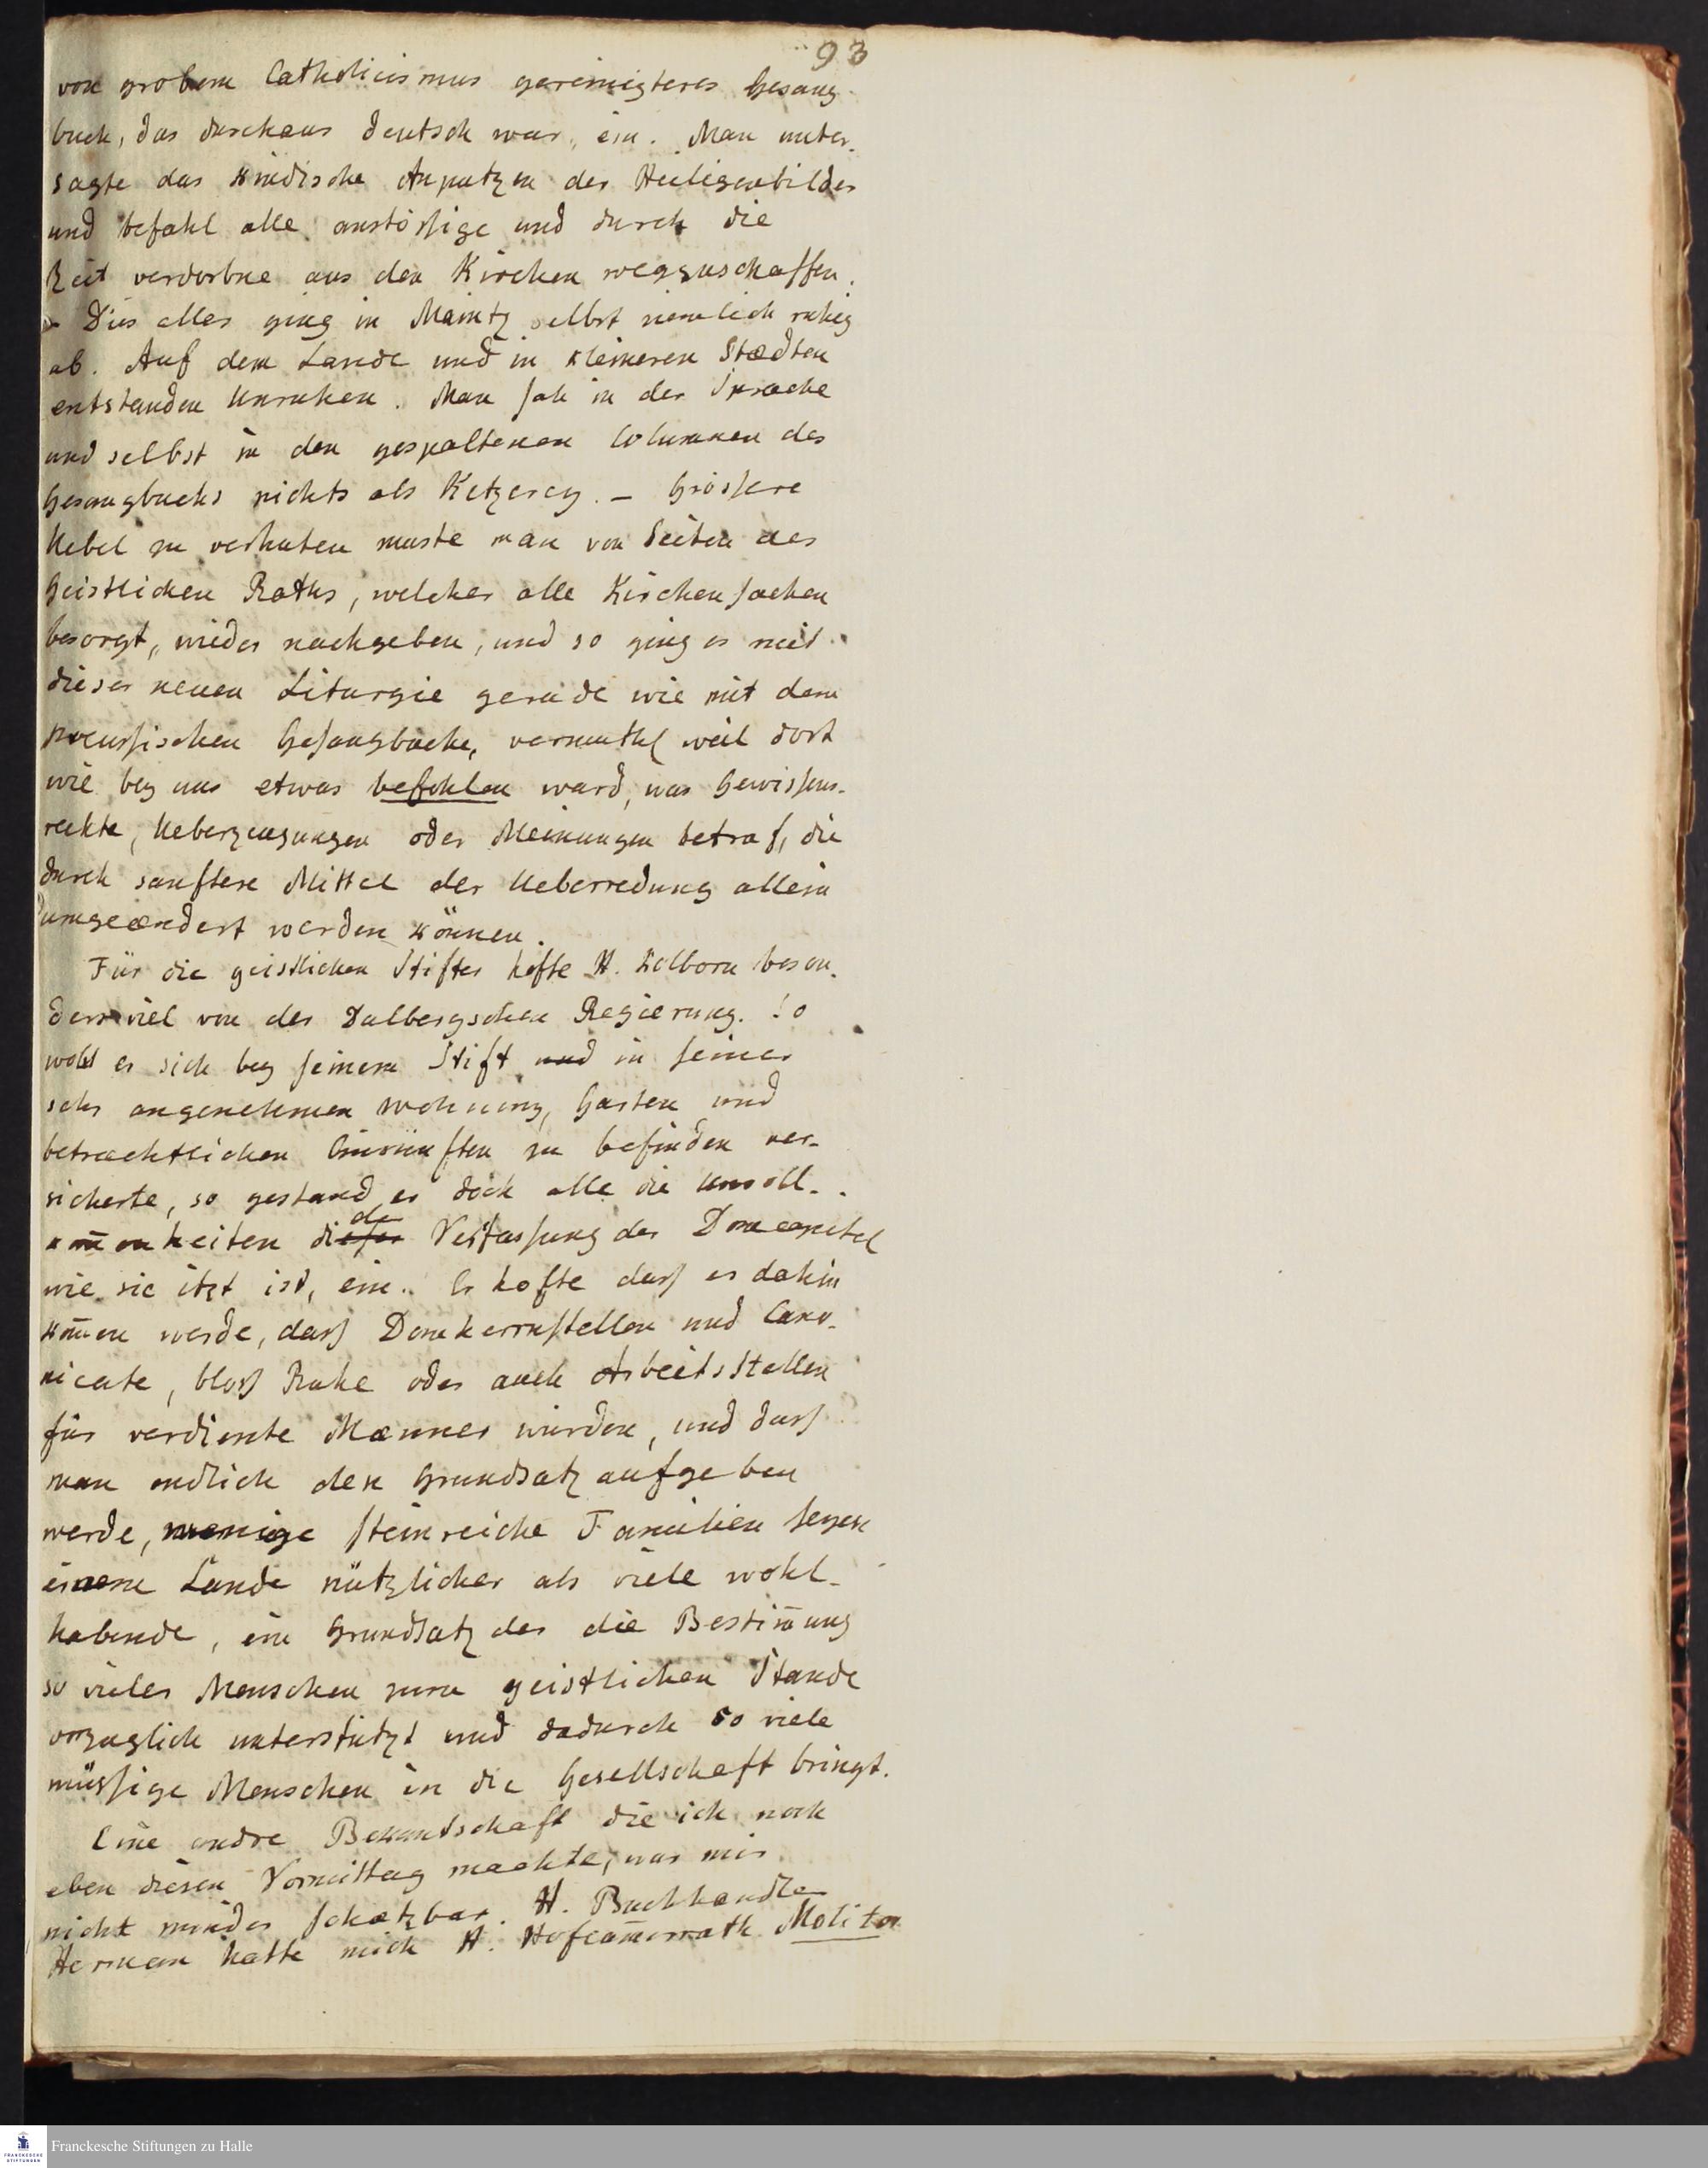 93
von grobem Catholicismus gereinigteres Gesang-
buch, das durchaus deutsch war, ein. Man unter-
sagte das kindische Anputzen der Heiligenbilder
und befahl alle anstössige und durch die
Zeit verdorbne aus den Kirchen wegzuschaffen.
Dies alles ging in Maintz selbst ziemlich ruhig
ab. Auf dem Lande und in kleineren Stædten
entstanden Unruhen. Man sah in der Sprache
und selbst in den gespaltenen Columnen des
Gesangbuchs nichts als Ketzerey. – Grössere
Uebel zu verhuten muste man von Seiten des
Geistlichen Raths, welcher alle Kirchensachen
besorgt, wieder nachgeben, und so ging es mit
dieser neuen Liturgie gerade wie mit dem
preussischen Gesangbuche, vermuthl weil dort
wie bey uns etwas befohlen ward, was Gewissens-
rechte, Ueberzeugungen oder Meinungen betraf, die
durch sanftere Mittel der Ueberredung allein
umgeændert werden können.
Für die geistlichen Stifter hofte H. Kolborn beson-
ders viel von der Dalbergschen Regierung. So
wohl er sich bey seinem Stift und in seiner
sehr angenehmen Wohnung, Garten und
betræchtlichen Einkünften zu befinden ver-
sicherte, so gestand er doch alle die Unvoll-
kom̄enheiten dieser der Verfassung der Domcapitel
wie sie itzt ist, ein. Er hofte dass es dahin
kom̄en werde, dass Domherrnstellen und Cano-
nicate, bloss Ruhe oder auch Arbeitsstellen
für verdiente Mænner würden, und dass
man endlich den Grundsatz aufgeben
werde, wenige steinreiche Familien seyen
einem Lande nützlicher als viele wohl-
habende, ein Grundsatz der die Bestim̄ung
so vieler Menschen zum geistlichen Stande
vorzuglich unterstützt und dadurch so viele
müssige Menschen in die Gesellschaft bringt.
Eine andre Bekantschaft die ich noch
eben diesen Vormittag machte, war mir
nicht minder schætzbar. H. Buchhandler
Herman hatte mich H. Hofcam̄errath Molitor
Franckesche Stiftungen zu Halle